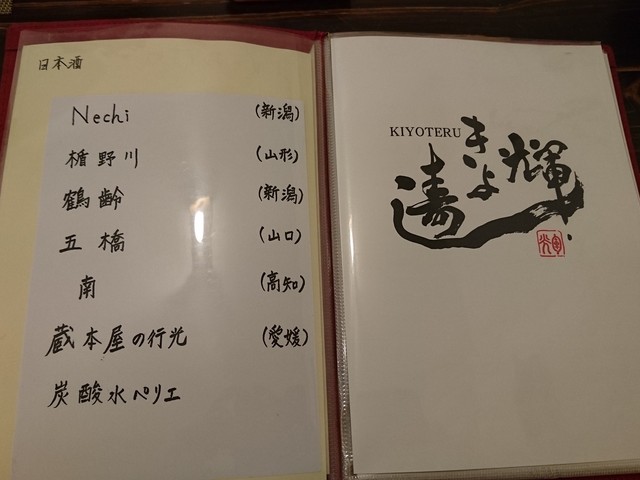 日本酒
Nechi (新潟)
楯野川 (山形)
鶴齢 (新潟)
五橋 (山口)
南 (高知)
蔵本屋の行光 (愛媛)
炭酸水ペリエ
KIYOTERU
きよ輝